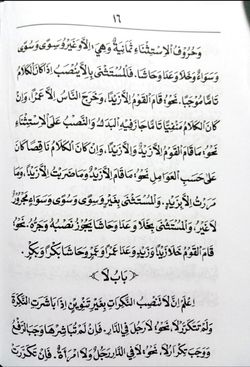 ١٦
وَحُرُوفُ الْاِسْتِثْنَاءِ ثَمَانِيَةٌ وَهِيَ اِلَّا وَغَيْرُ وَسِوًى وَسُوًى
وَسَوَاءٌ وَخَلَا وَعَدَا وَحَاشَا. فَالْمُسْتَثْنَى بِاِلَّا يُنْصَبُ اِذَا كَانَ الْكَلَامُ
تَامًّا مُوْجَبًا. نَحْوُ قَامَ الْقَوْمُ اِلَّا زَيْدًا. وَخَرَجَ النَّاسُ اِلَّا عَمْرًا. وَاِنْ
كَانَ الْكَلَامُ مَنْفِيًّا تَامًّا جَازَ فِيْهِ الْبَدَلُ وَالنَّصْبُ عَلَى الْاِسْتِثْنَاءِ
نَحْوُ: مَا قَامَ الْقَوْمُ اِلَّا زَيْدٌ وَاِلَّا زَيْدًا. وَاِنْ كَانَ الْكَلَامُ نَاقِصًا كَانَ
عَلَى حَسَبِ الْعَوَامِلِ نَحْوُ: مَا قَامَ اِلَّا زَيْدٌ وَمَا ضَرَبْتُ اِلَّا زَيْدًا. وَمَا
مَرَرْتُ اِلَّا بِزَيْدٍ. وَالْمُسْتَثْنَى بِغَيْرٍ وَسِوًى وَسُوًى وَسَوَاءٍ مَجْرُوْرٌ
لَا غَيْرُ. وَالْمُسْتَثْنَى بِخَلَا وَعَدَا وَحَاشَا يَجُوْزُ نَصْبُهُ وَجَرُّهُ. نَحْوُ:
قَامَ الْقَوْمُ خَلَا زَيْدًا وَزَيْدٍ وَعَدَا عَمْرًا وَعَمْرٍو وَحَاشَا بَكْرًا وَبَكْرٍ.
﴿ بَابُ لَا ﴾
اِعْلَمْ اِنَّ لَا تَنْصِبُ النَّكِرَاتِ بِغَيْرِ تَنْوِيْنٍ اِذَا بَاشَرَتِ النَّكِرَةَ
وَلَمْ تَتَكَرَّرْ لَا. نَحْوُ: لَا رَجُلَ فِي الدَّارِ. فَاِنْ لَمْ تُبَاشِرْهَا وَجَبَ الرَّفْعُ
وَوَجَبَ تَكْرَارُ لَا. نَحْوُ: لَا فِي الدَّارِ رَجُلٌ وَلَا امْرَأَةٌ. فَاِنْ تَكَرَّرَتْ